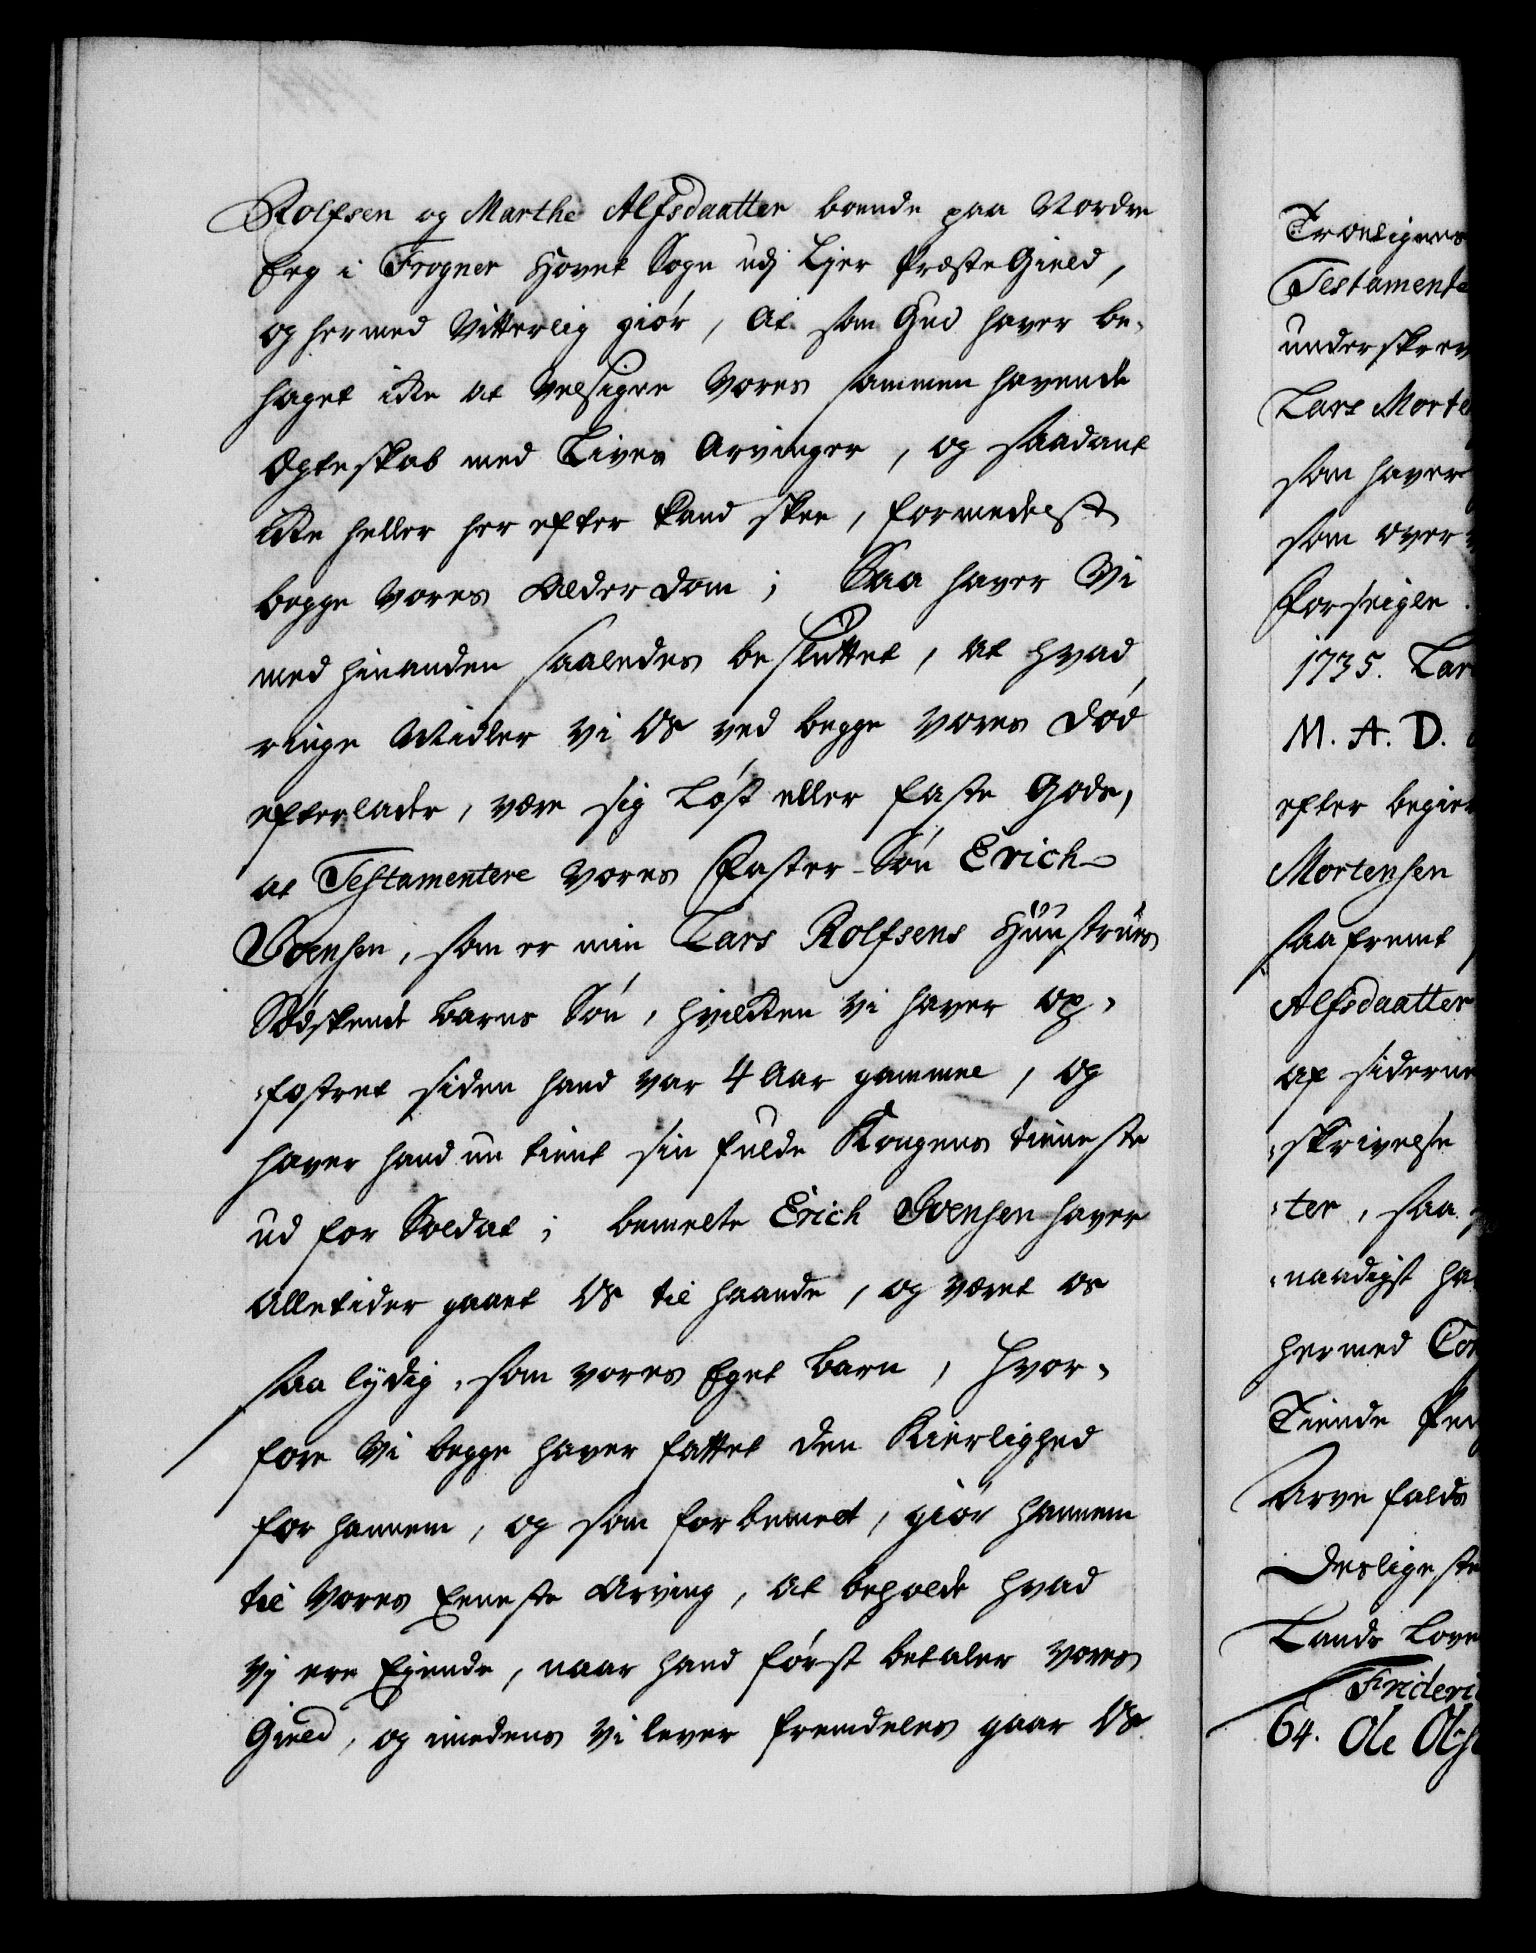 Rolfsen og Marthe Alfsdaatter boende paa Nordre
Eeg i Frogner Hovet Sogn udj Ljer Præste Gield,
og hermed Vitterlig giør, At som Gud haver be-
haget icke at velsigne Vores sammen havende
Ægteskab med Lives Arvinger, og saadant
icke heller her efter kand skee, formedelst
begge vores Alderdom; Saa haver Vi
med hinanden saaledes besluttet, at hvad
ringe Midler vi Os ved begge vores Død
efterlader, være sig Løst eller faste Gods,
at Testamentere vores Foster-Søn Erich
Svensen, som er min Lars Rolfsens Huustrues
Sødskende Barns Søn, hvilken vi haver op-
:fostret siden hand var 4 Aar gammel, og
haver hand nu tient sin fulde Kongens tieneste
ud for Soldat; bemelte Erich Svensen haver
Alletider gaaet Os til haande, og været os
saa lydig, som vores Eget Barn, hvor-
fore Vi begge haver fattet den Kierlighed
for hannem, og som forbemelt, giør hannem
til Vores Eeneste Arving, at beholde hvad
vj ere Ejende, naar hand først betaler vores
Gield, og imedens vi lever fremdeles gaar Os
Testamente
underskrev
Lars Morte
som haver
som over
forseigle
1735. Lar
M. A. D.
efter begier
Mortensen
saafremt
Alfsdaatter
af siderne
:skrivelse
:ter, saa
:naadigst ha
hermed Con
Tiende Pen
Arve falds
Desligeste
Lands Lov
Frideric
64. Ole Ols